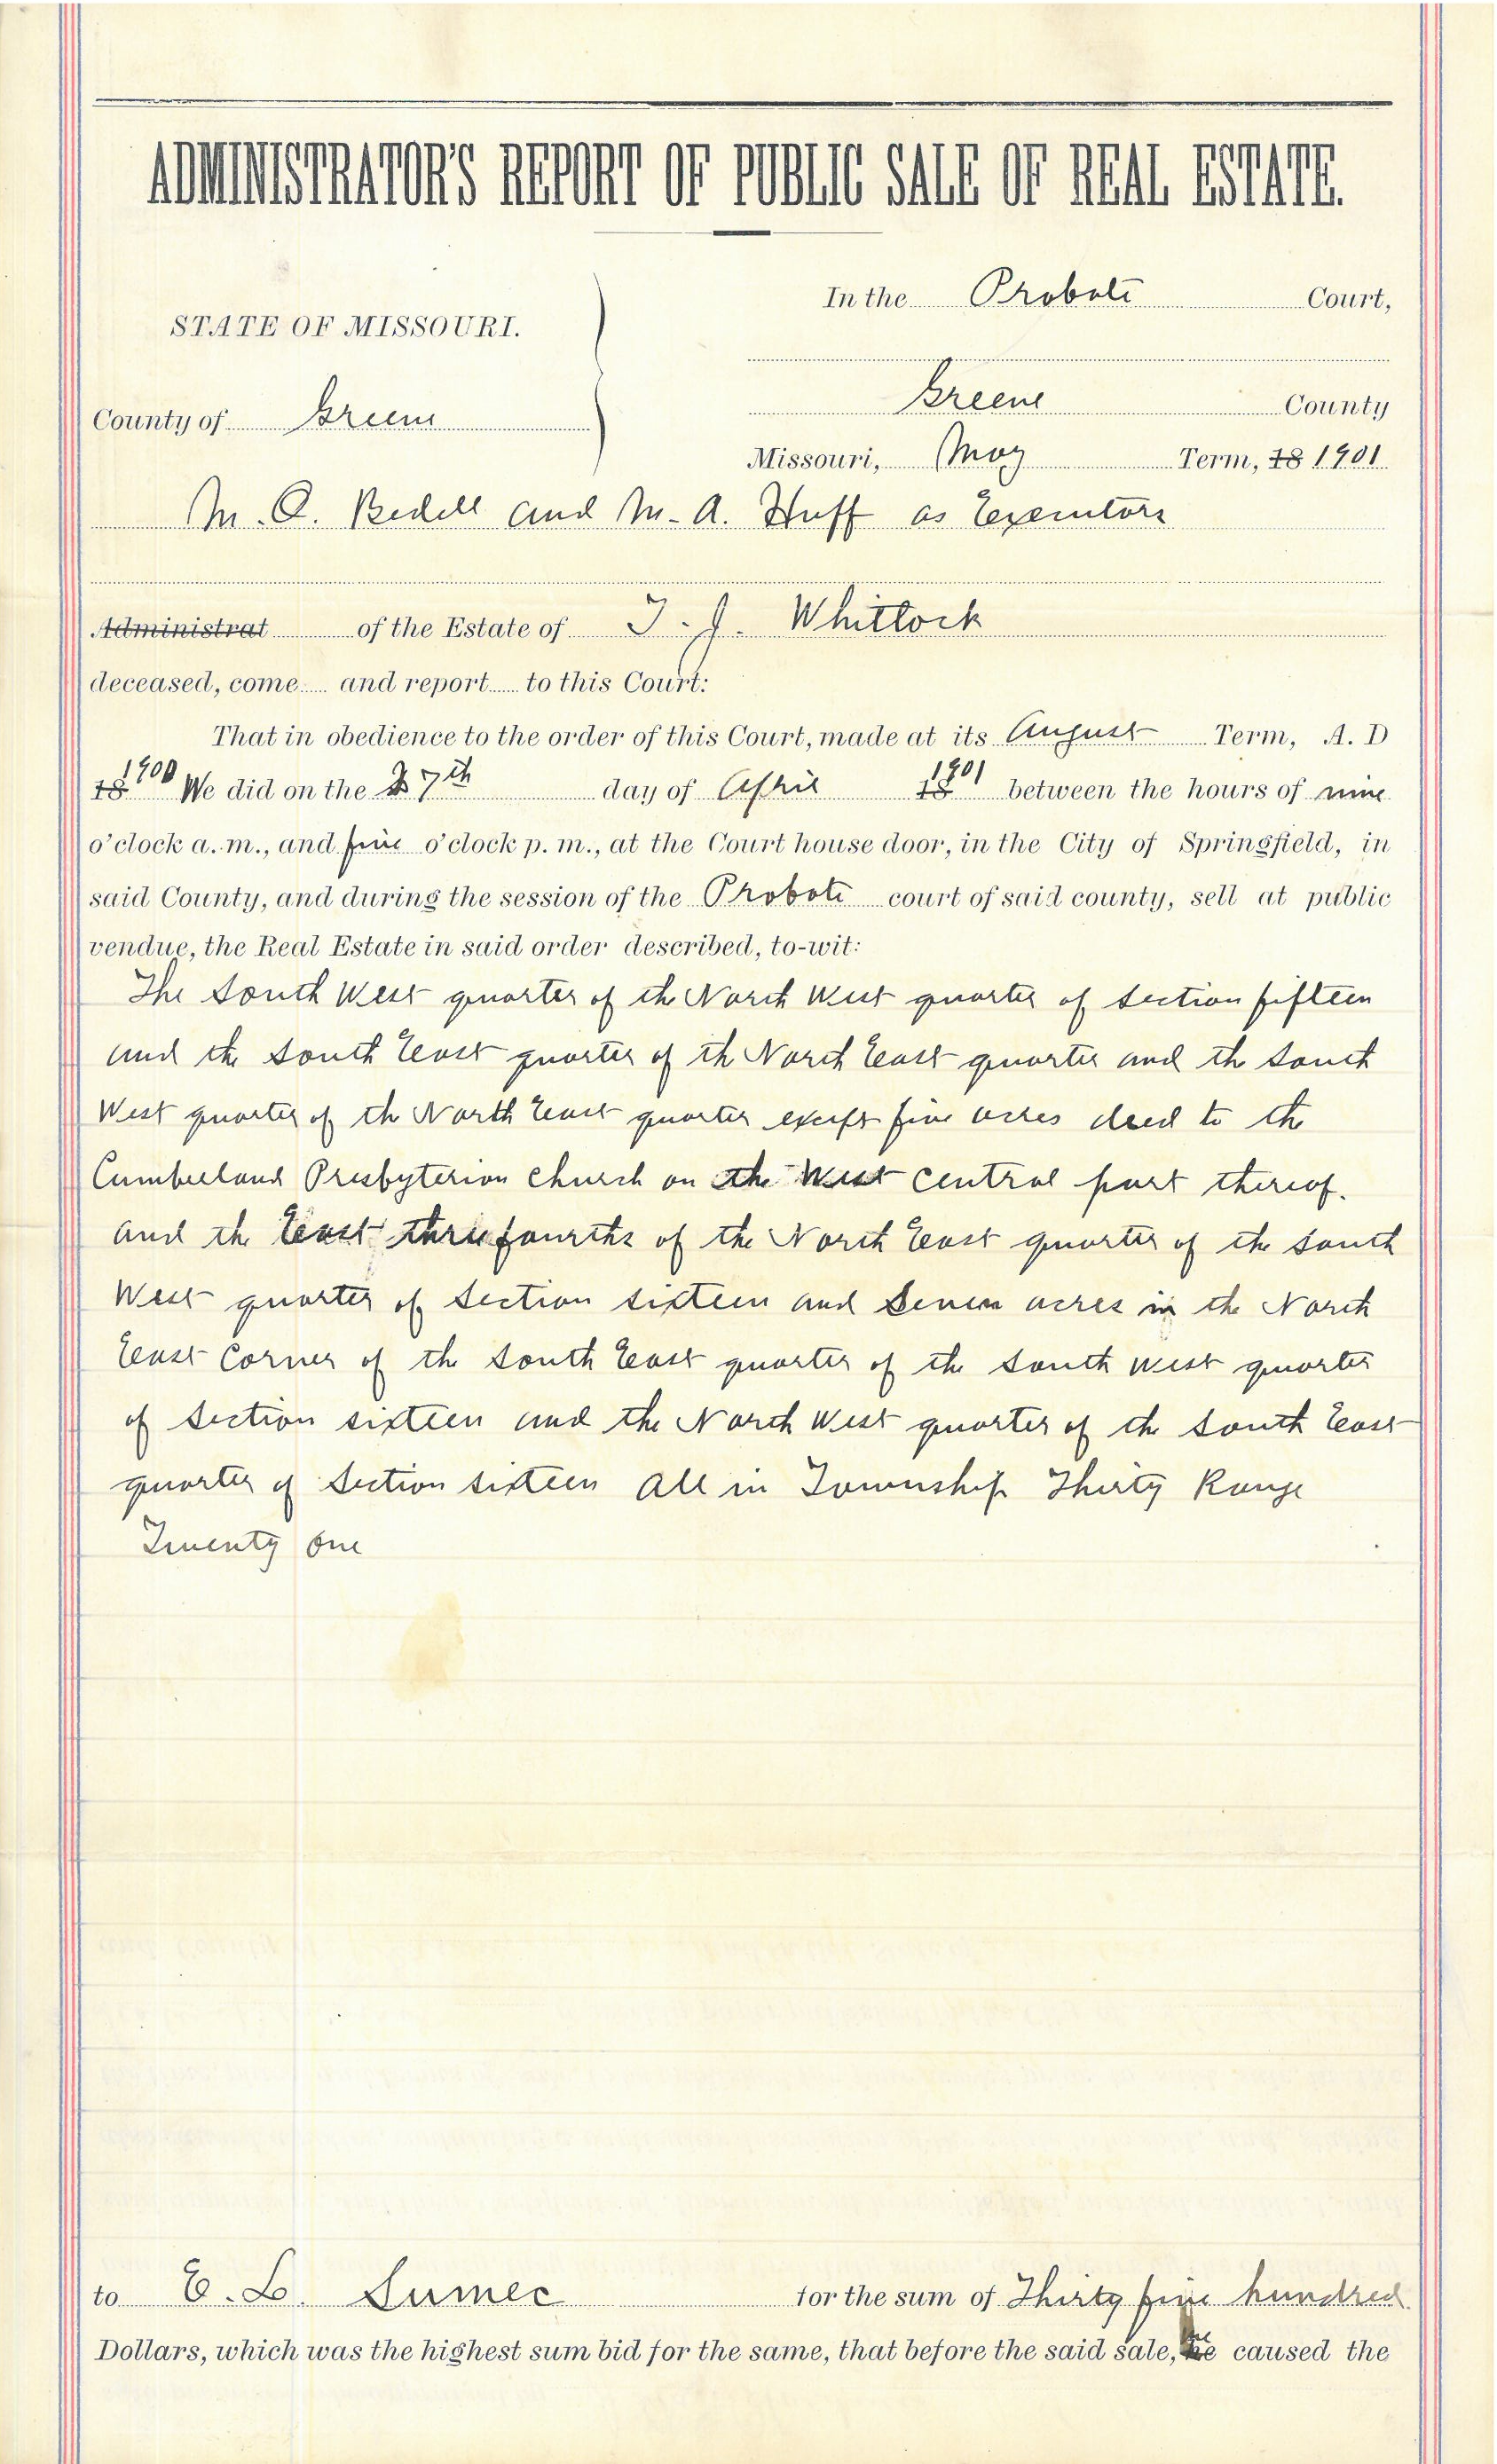 ADMINISTRATOR'S REPORT OF PUBLIC SALE OF REAL ESTATE.
In the Probate Court,
STATE OF MISSOURI.
Greene County
County of Greene
Missouri, May Term, 18 1901
M. Q. Bedell and M. A. Huff as Executors
Administrat of the Estate of T. J. Whitlock
deceased, come and report to this Court:
That in obedience to the order of this Court, made at its August Term, A. D
18 1900 We did on the 27th day of April 18 1901 between the hours of nine
o'clock a. m., and five o'clock p. m., at the Court house door, in the City of Springfield, in
said County, and during the session of the Probate court of said county, sell at public
vendue, the Real Estate in said order described, to-wit:
The South West quarter of the North West quarter of Section fifteen
and the South East quarter of th North East quarter and th South
West quarter of th North East quarter except five acres deed to the
Cumberland Presbyterian Church on the West central part thereof.
and the East three fourths of the North East quarter of the South
West quarter of Section sixteen and Seven acres in the North
East Corner of the South East quarter of the South West quarter
of Section sixteen and the North West quarter of the South East
quarter of Section sixteen All in Township Thirty Range
Twenty One
to E. L. for the sum of Thirty five hundred
Dollars, which was the highest sum bid for the same, that before the said sale, we caused the